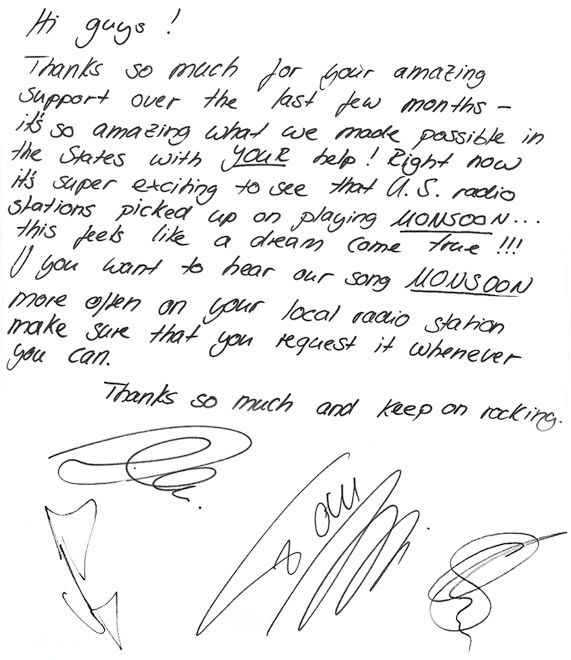 Hi guys!
Thanks so much for your amazing
support over the last few months –
it's so amazing what we made possible in
the States with YOUR help! Right now
it's super exciting to see that U.S. radio
stations picked up on playing MONSOON...
this feels like a dream come true!!!
If you want to hear our song MONSOON
more often on your local radio station
make sure that you request it whenever
you can.
Thanks so much and keep on rocking.